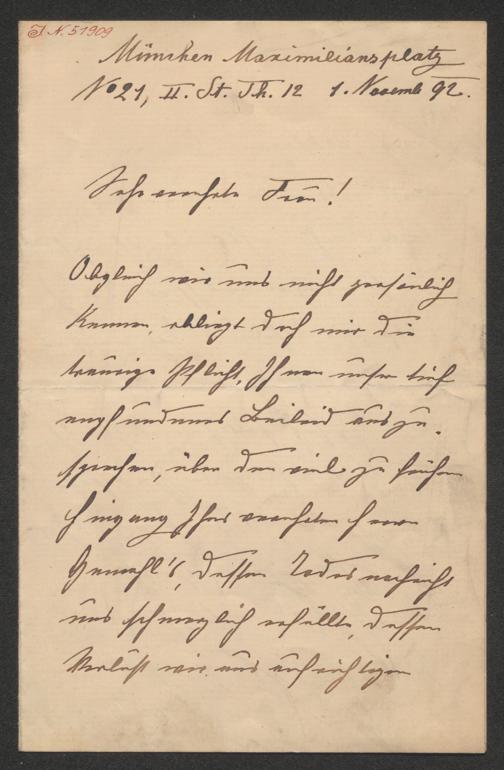 I. N. 51909
München Maximiliansplatz
No 21, II. St. Th. 12 1. Novemb 92.
Sehr verehrte Frau!
Obgleich wir uns nicht persönlich
kennen, obliegt doch mir die
traurige Pflicht, Ihnen unser tief
empfundenes Beileid auszu-
sprechen, über den viel zu frühen
Hingang Ihres verehrten Herrn
Gemahl's, dessen Todesnachricht
uns schmerzlich erfüllte, dessen
Verlust wir aus aufrichtigem